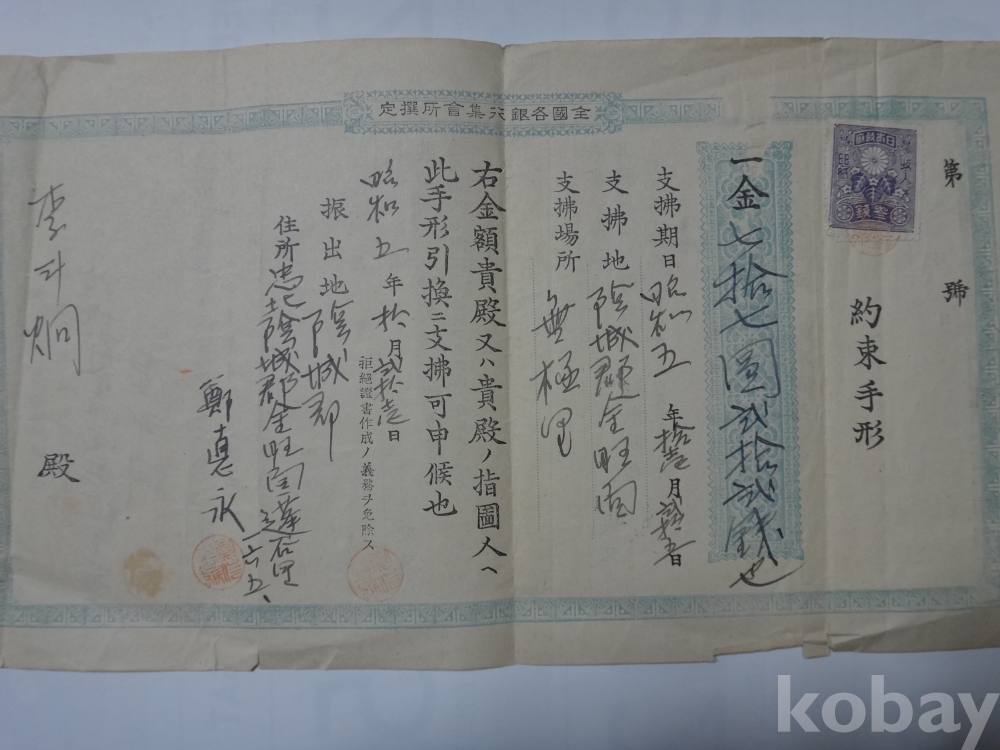 全國各銀行集會所撰定
第 號
約束手形
一金七拾七圓貳拾貳錢也
支拂期日昭和五年拾壱月貳拾五日
支拂地陰城郡金旺面
支拂場所 無極里
右金額貴殿又ハ貴殿ノ指圖人ヘ
此手形引換ニ支拂可申候也
拒絕證書作成ノ義務ヲ免除ス
昭和五年拾月貳拾壱日
振出地陰城郡
住所忠北陰城郡金旺面 里一六五、
鄭 永
李斗炯 殿
kobay